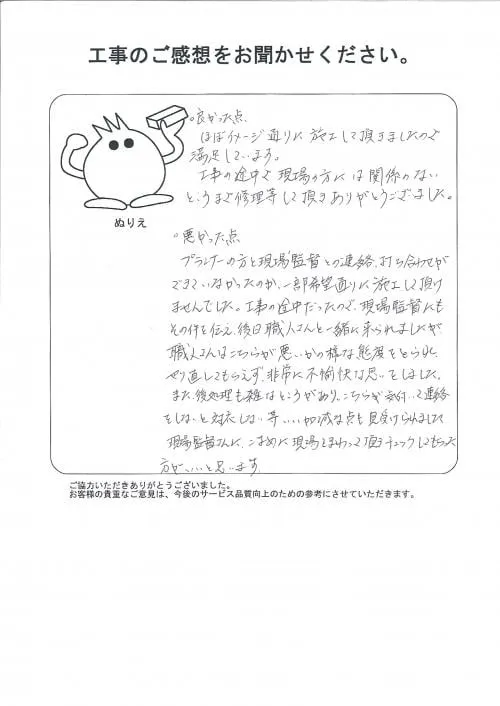 工事のご感想をお聞かせください。
ぬりえ
○良かった点
ほぼイメージ通りに施工して頂きましたので
満足しています。
工事の途中で現場の方には関係のない
ところまで修理等して頂きありがとうございました。
○悪かった点
プランナーの方と現場監督との連絡、打ち合わせが
できていなかったのか、一部希望通りに施工して頂け
ませんでした。工事の途中だったので、現場監督にも
その件を伝え、後日職人さんと一緒に来られましたが
職人さんはこちらが悪いかの様な態度をとられ
やり直してもらえず、非常に不愉快な思いをしました。
また、後処理も雑なところがあり、こちらが気付いて連絡
をしないと対応しない等いい加減な点も見受けられました
現場監督さんに、こまめに現場をまわって頂きチェックしてもらった
方がいいと思います
ご協力いただきありがとうございました。
お客様の貴重なご意見は、今後のサービス品質向上のための参考にさせていただきます。